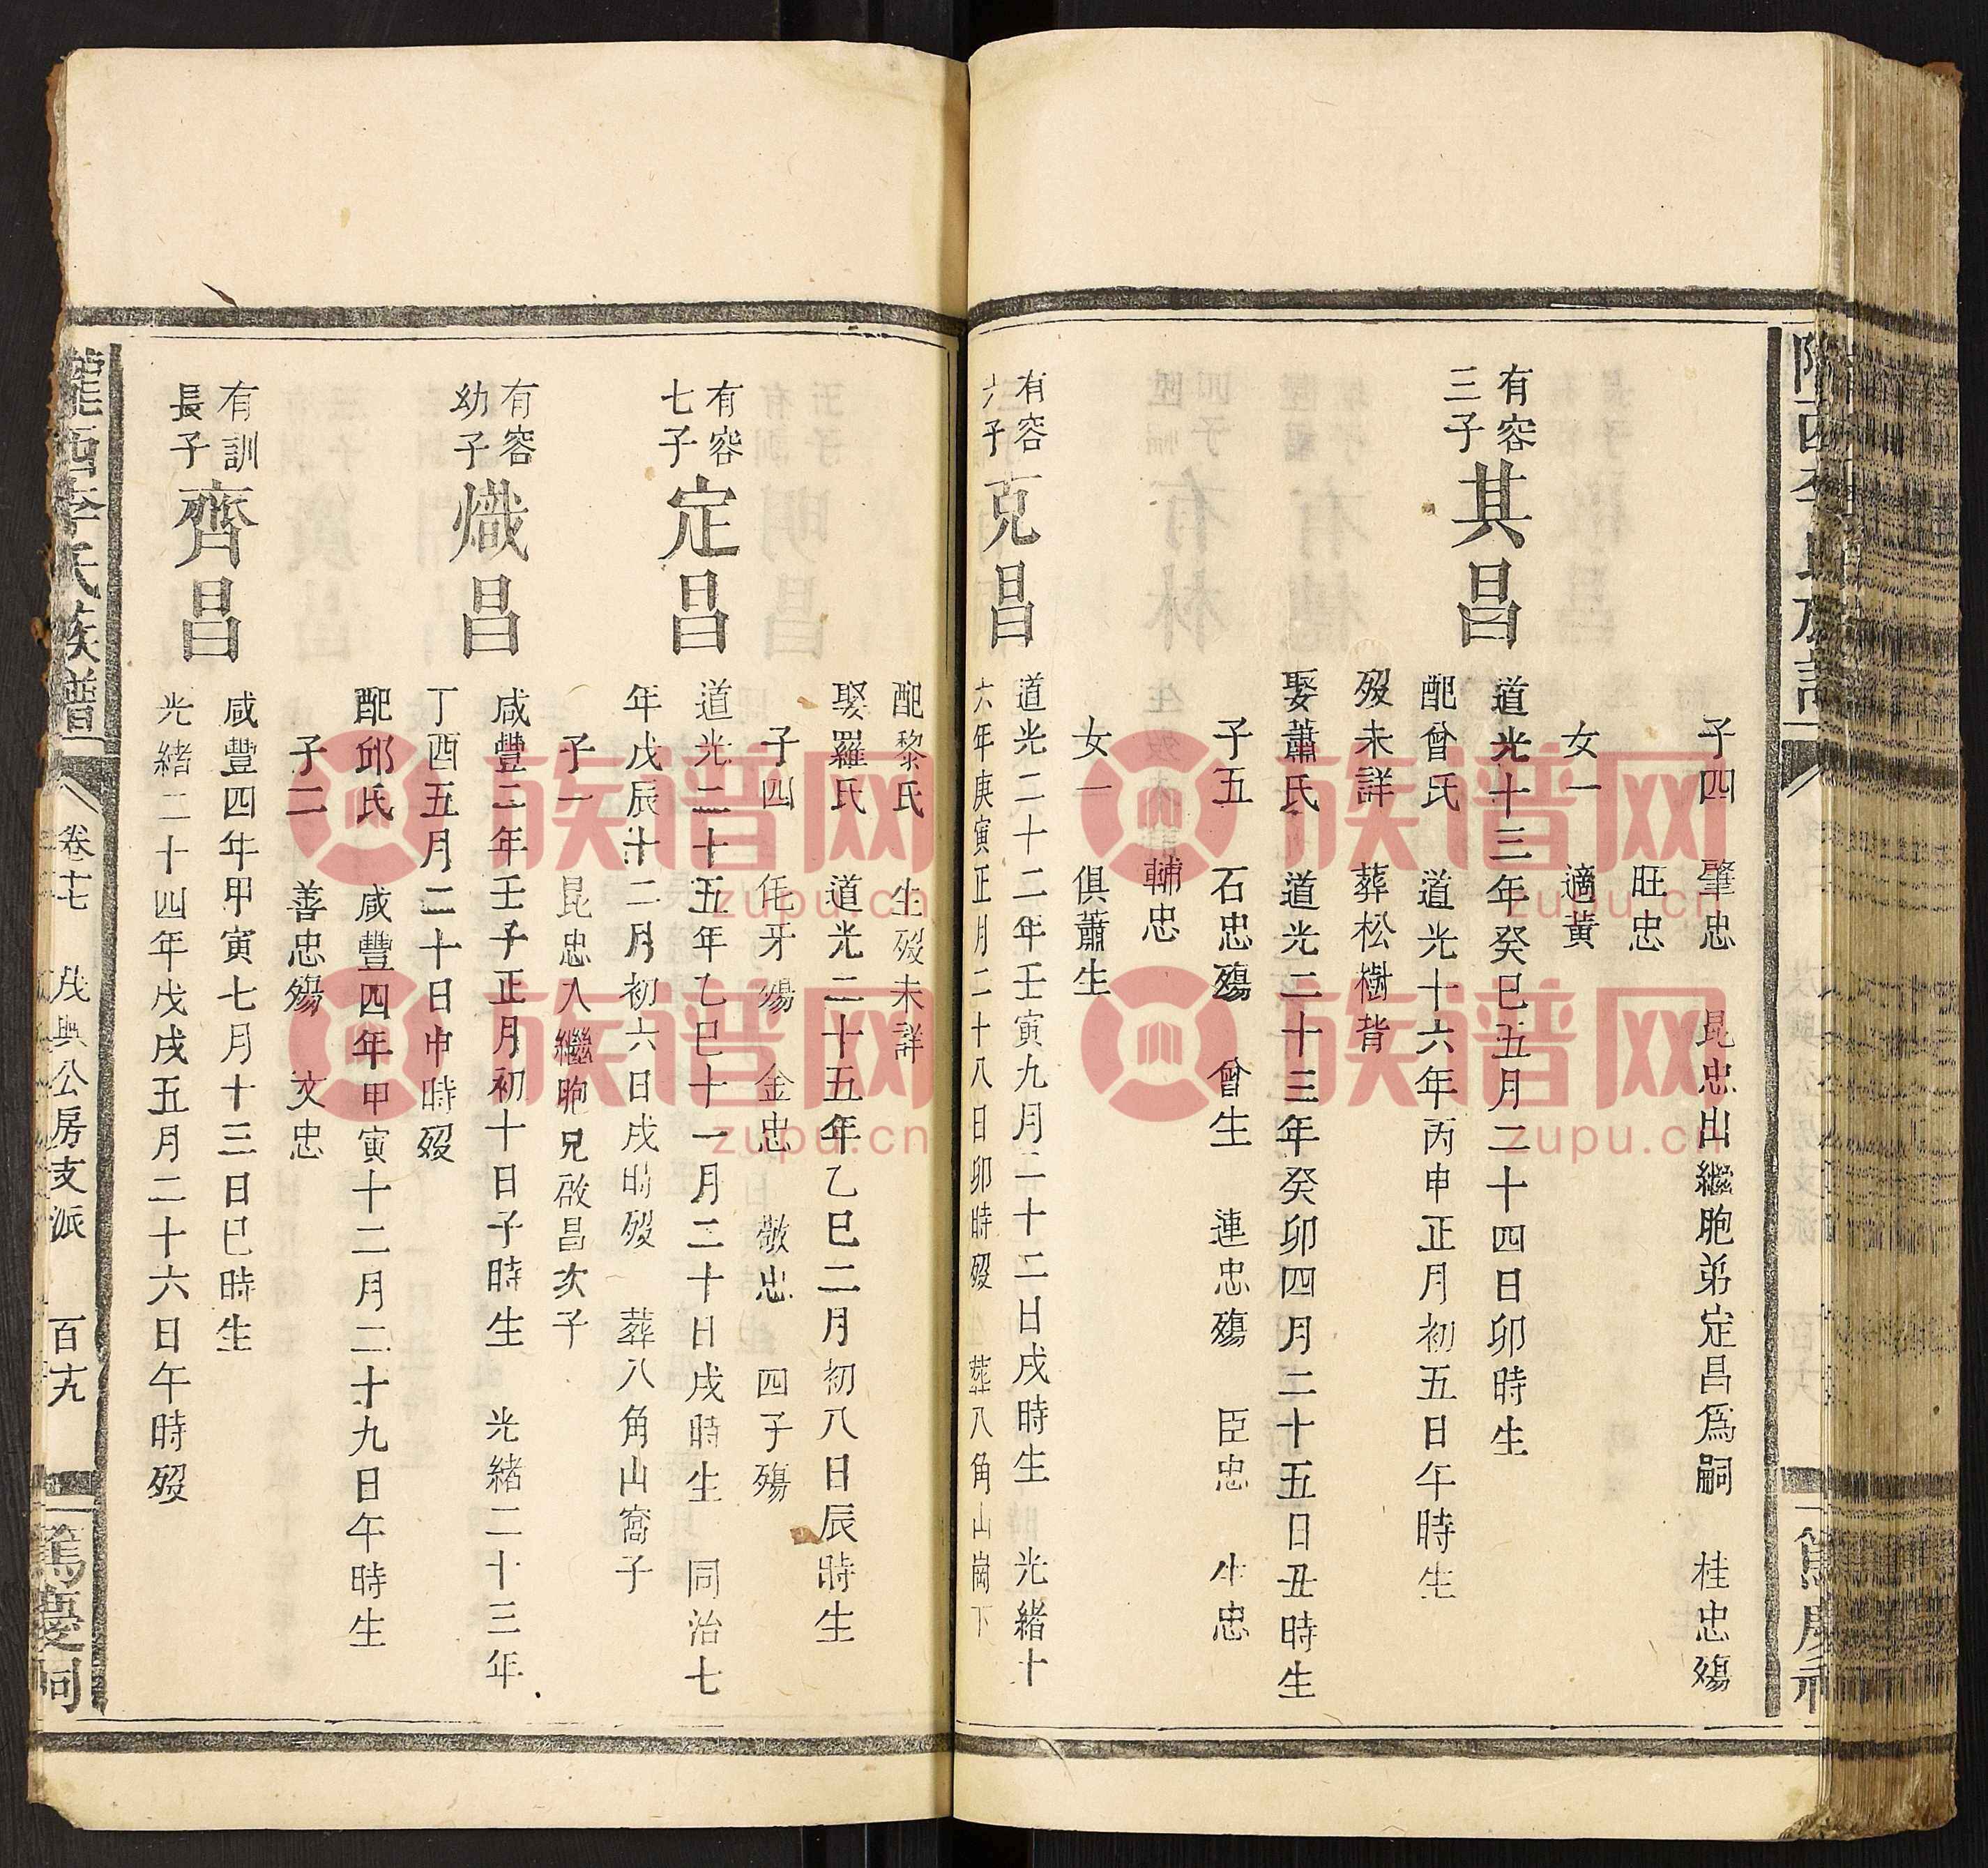 子四 肇忠 昆忠出繼胞弟定昌爲嗣 桂忠殤
旺忠
女一 適黃
有容
三子
其昌
道光十三年癸巳五月二十四日卯時生
配曾氏 道光十六年丙申正月初五日午時生
歿未詳 葬松樹背
娶蕭氏 道光二十三年癸卯四月二十五日丑時生
子五 石忠殤 曾生 連忠殤 臣忠 生忠
輔忠
女一 俱蕭生
有容
六子
克昌
道光二十二年壬寅九月二十二日戌時生 光緒十
六年庚寅正月二十八日卯時歿 葬八角山崗下
配黎氏 生歿未詳
娶羅氏 道光二十五年乙巳二月初八日辰時生
子四 毛牙殤 金忠 敬忠 四子殤
有容
七子
定昌
道光二十五年乙巳十一月二十日戌時生 同治七
年戊辰十二月初六日戌時歿 葬八角山窩子
子一 昆忠入繼胞兄啟昌次子
有容
幼子
熾昌
咸豐二年壬子正月初十日子時生 光緒二十三年
丁酉五月二十日申時歿
配邱氏 咸豐四年甲寅十二月二十九日午時生
子二 善忠殤 汶忠
有訓
長子
齊昌
咸豐四年甲寅七月十三日巳時生
光緒二十四年戊戌五月二十六日午時歿
隴西李氏族譜
卷十七 茂興公房支派 百九
篤慶祠
族谱网
zupu.cn
族谱网
zupu.cn
族谱网
zupu.cn
族谱网
zupu.cn